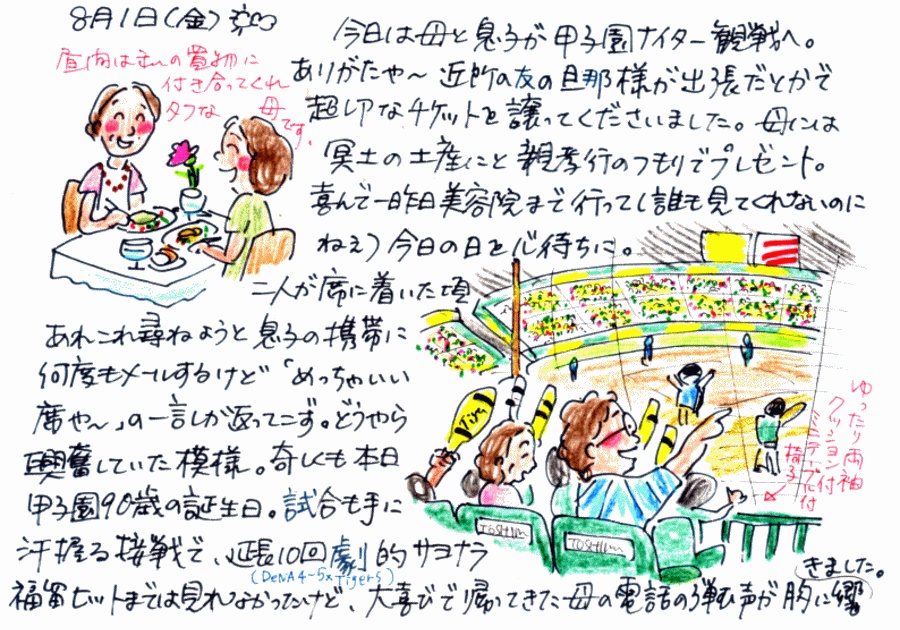 8月1日(金)
昼間は私の買物に
付き合ってくれ
タフな母です。
今日は母と息子が甲子園ナイター観戦へ。
ありがたや〜近所の友の旦那様が出張だとかで
超レアなチケットを譲ってくださいました。母には
冥土の土産にと親孝行のつもりでプレゼント。
喜んで一昨日美容院まで行って(誰も見てくれないのに
ねぇ)今日の日を心待ちに。
二人が席に着いた頃
あれこれ尋ねようと息子の携帯に
何度もメールするけど「めっちゃいい
席や〜」の一言しか返ってこず。どうやら
興奮していた模様。奇しくも本日
甲子園90歳の誕生日。試合も手に
汗握る接戦で、延長10回劇的サヨナラ
(DeNA4-5xTigers)
福留ヒットまでは見れなかったけど、大喜びで帰ってきた母の電話の弾む声が胸に響
きました。
ゆったり両袖
クッション付
ミニテーブル付
椅子
Tigers
TOSHIBA
TOSHIBA